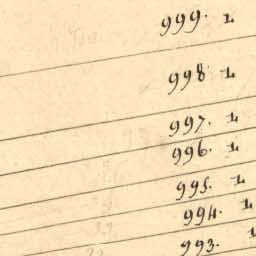 999. 1
998 1
997. 1
996. 1
995. 1
994. 1
993. 1